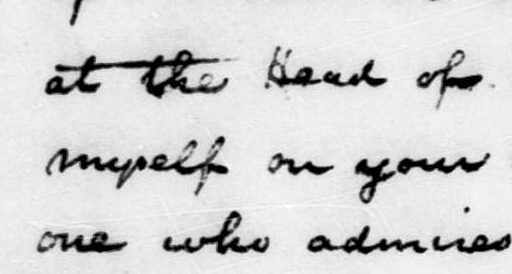 at the Head of
myself on your
one who admires